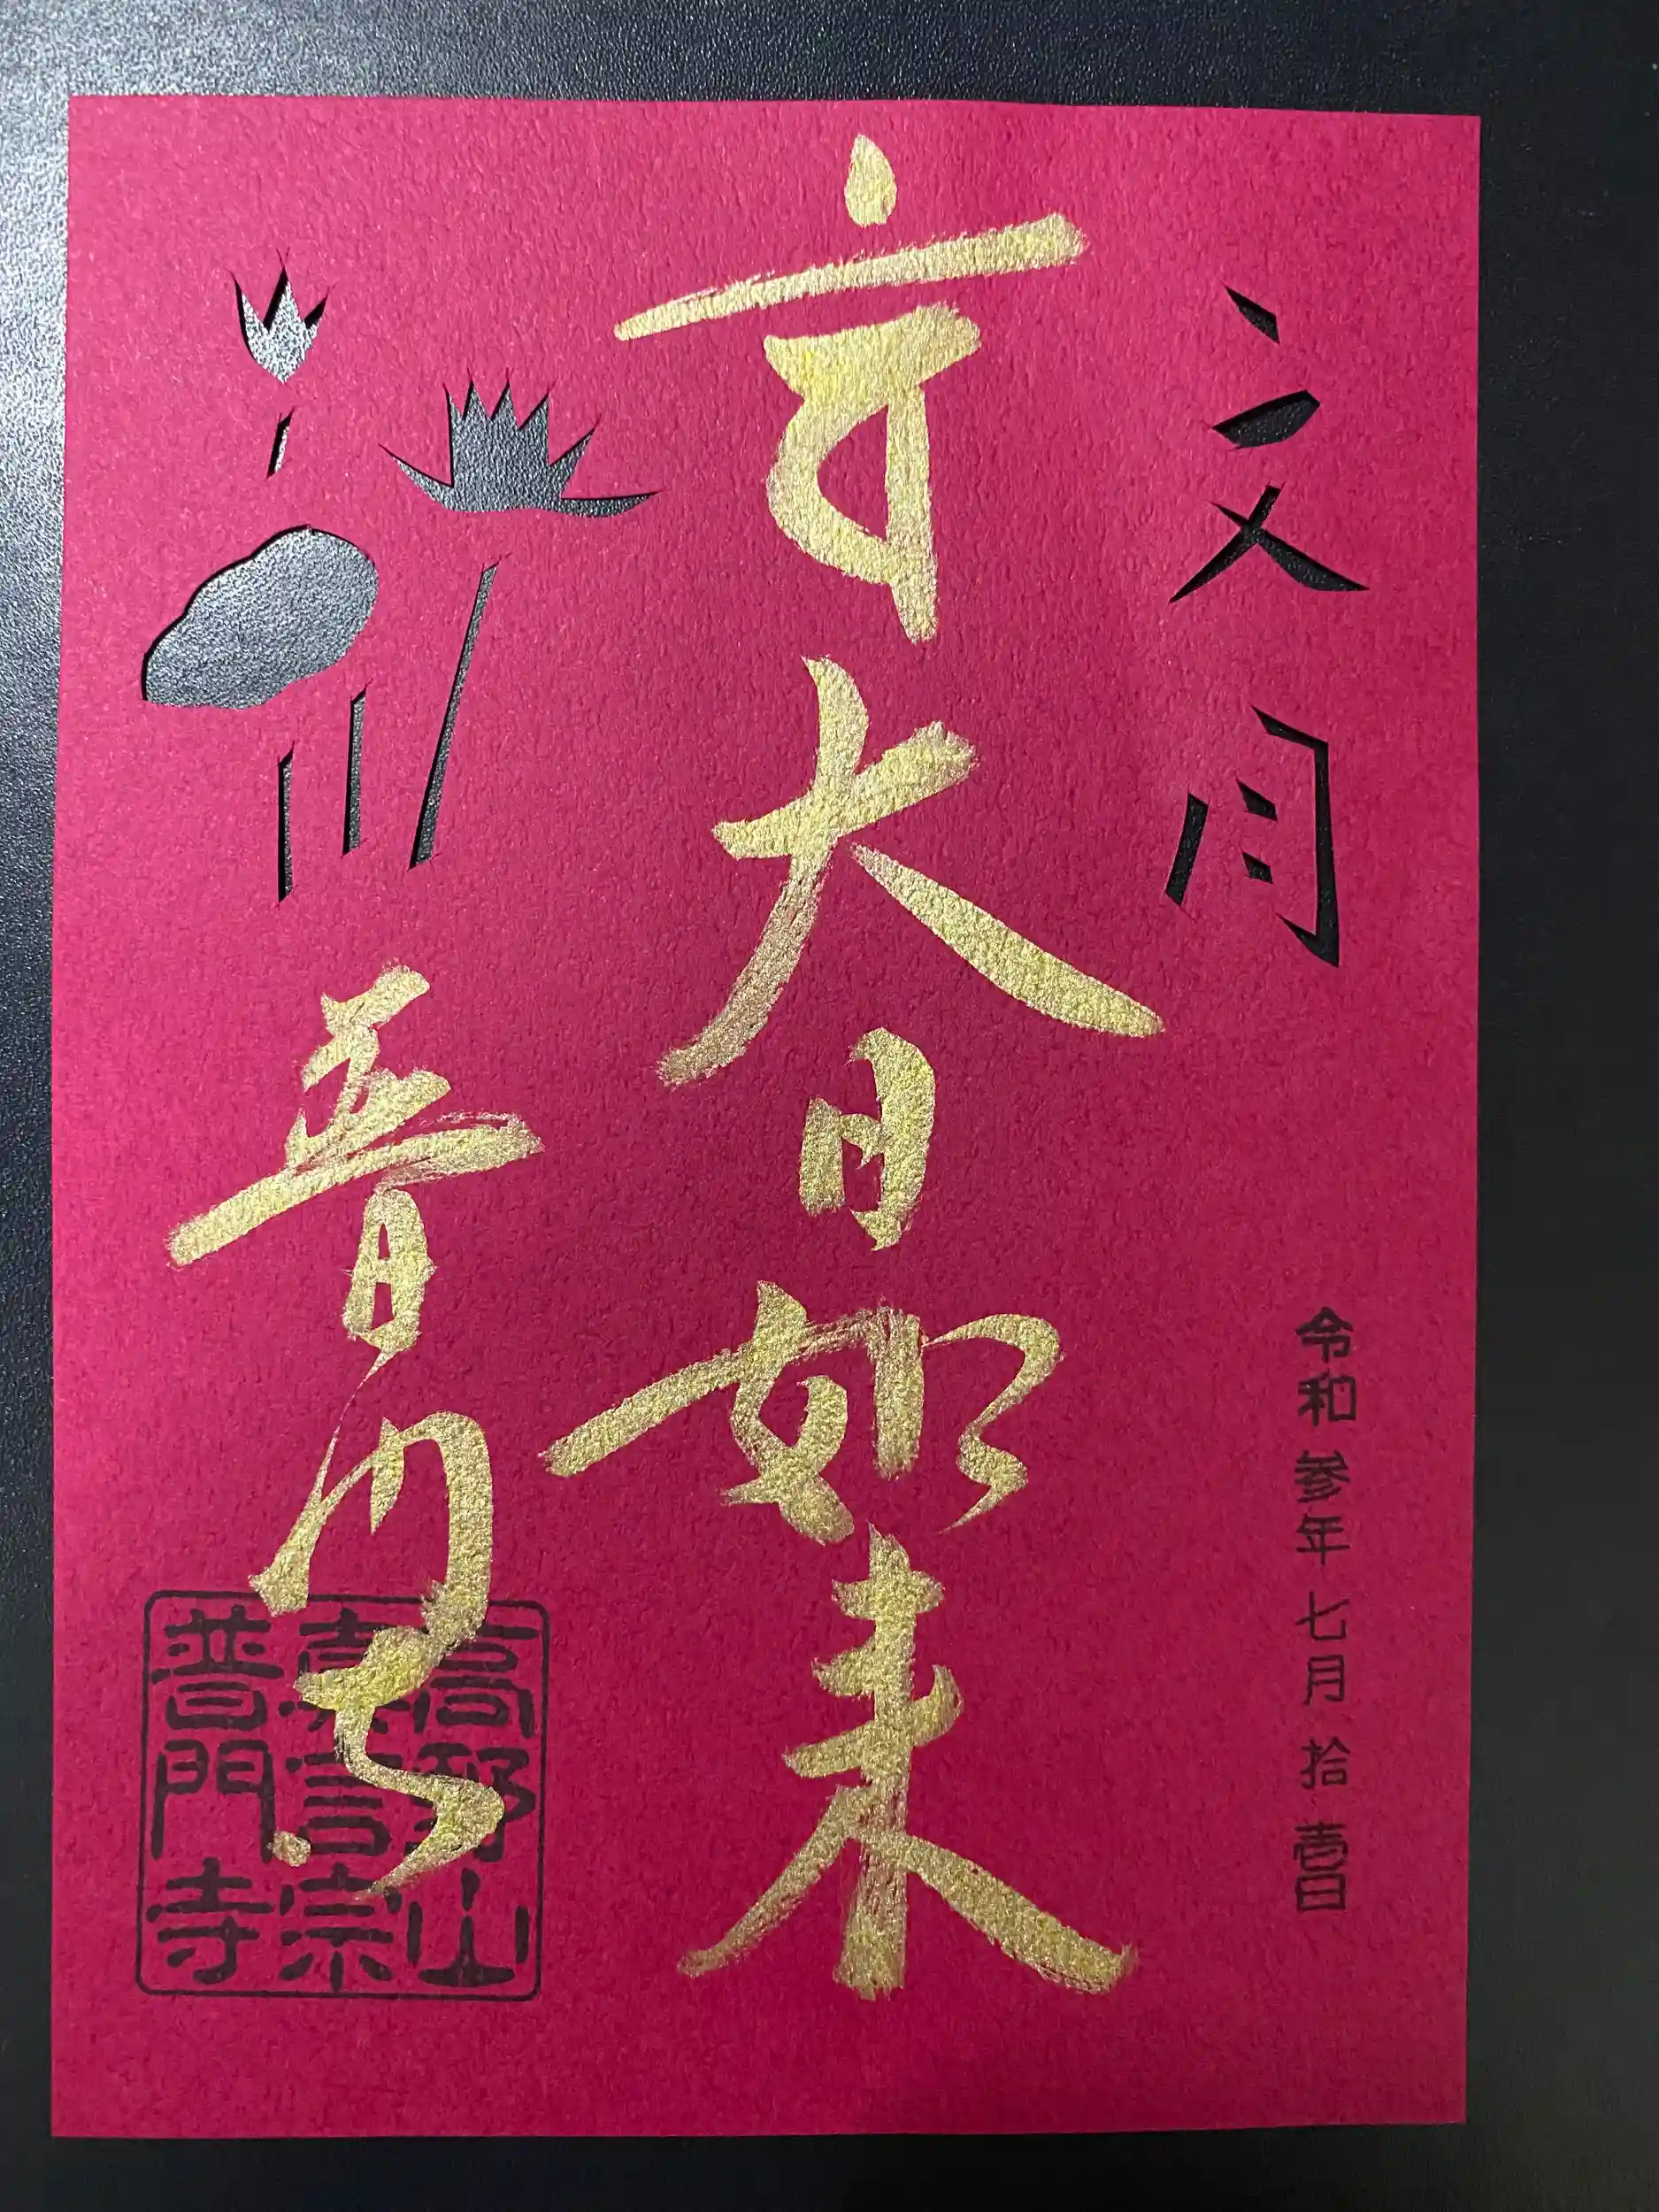 文月
令和参年七月拾壱日
𑖪𑖽大日如来
普門寺
高野山
真言宗
普門寺